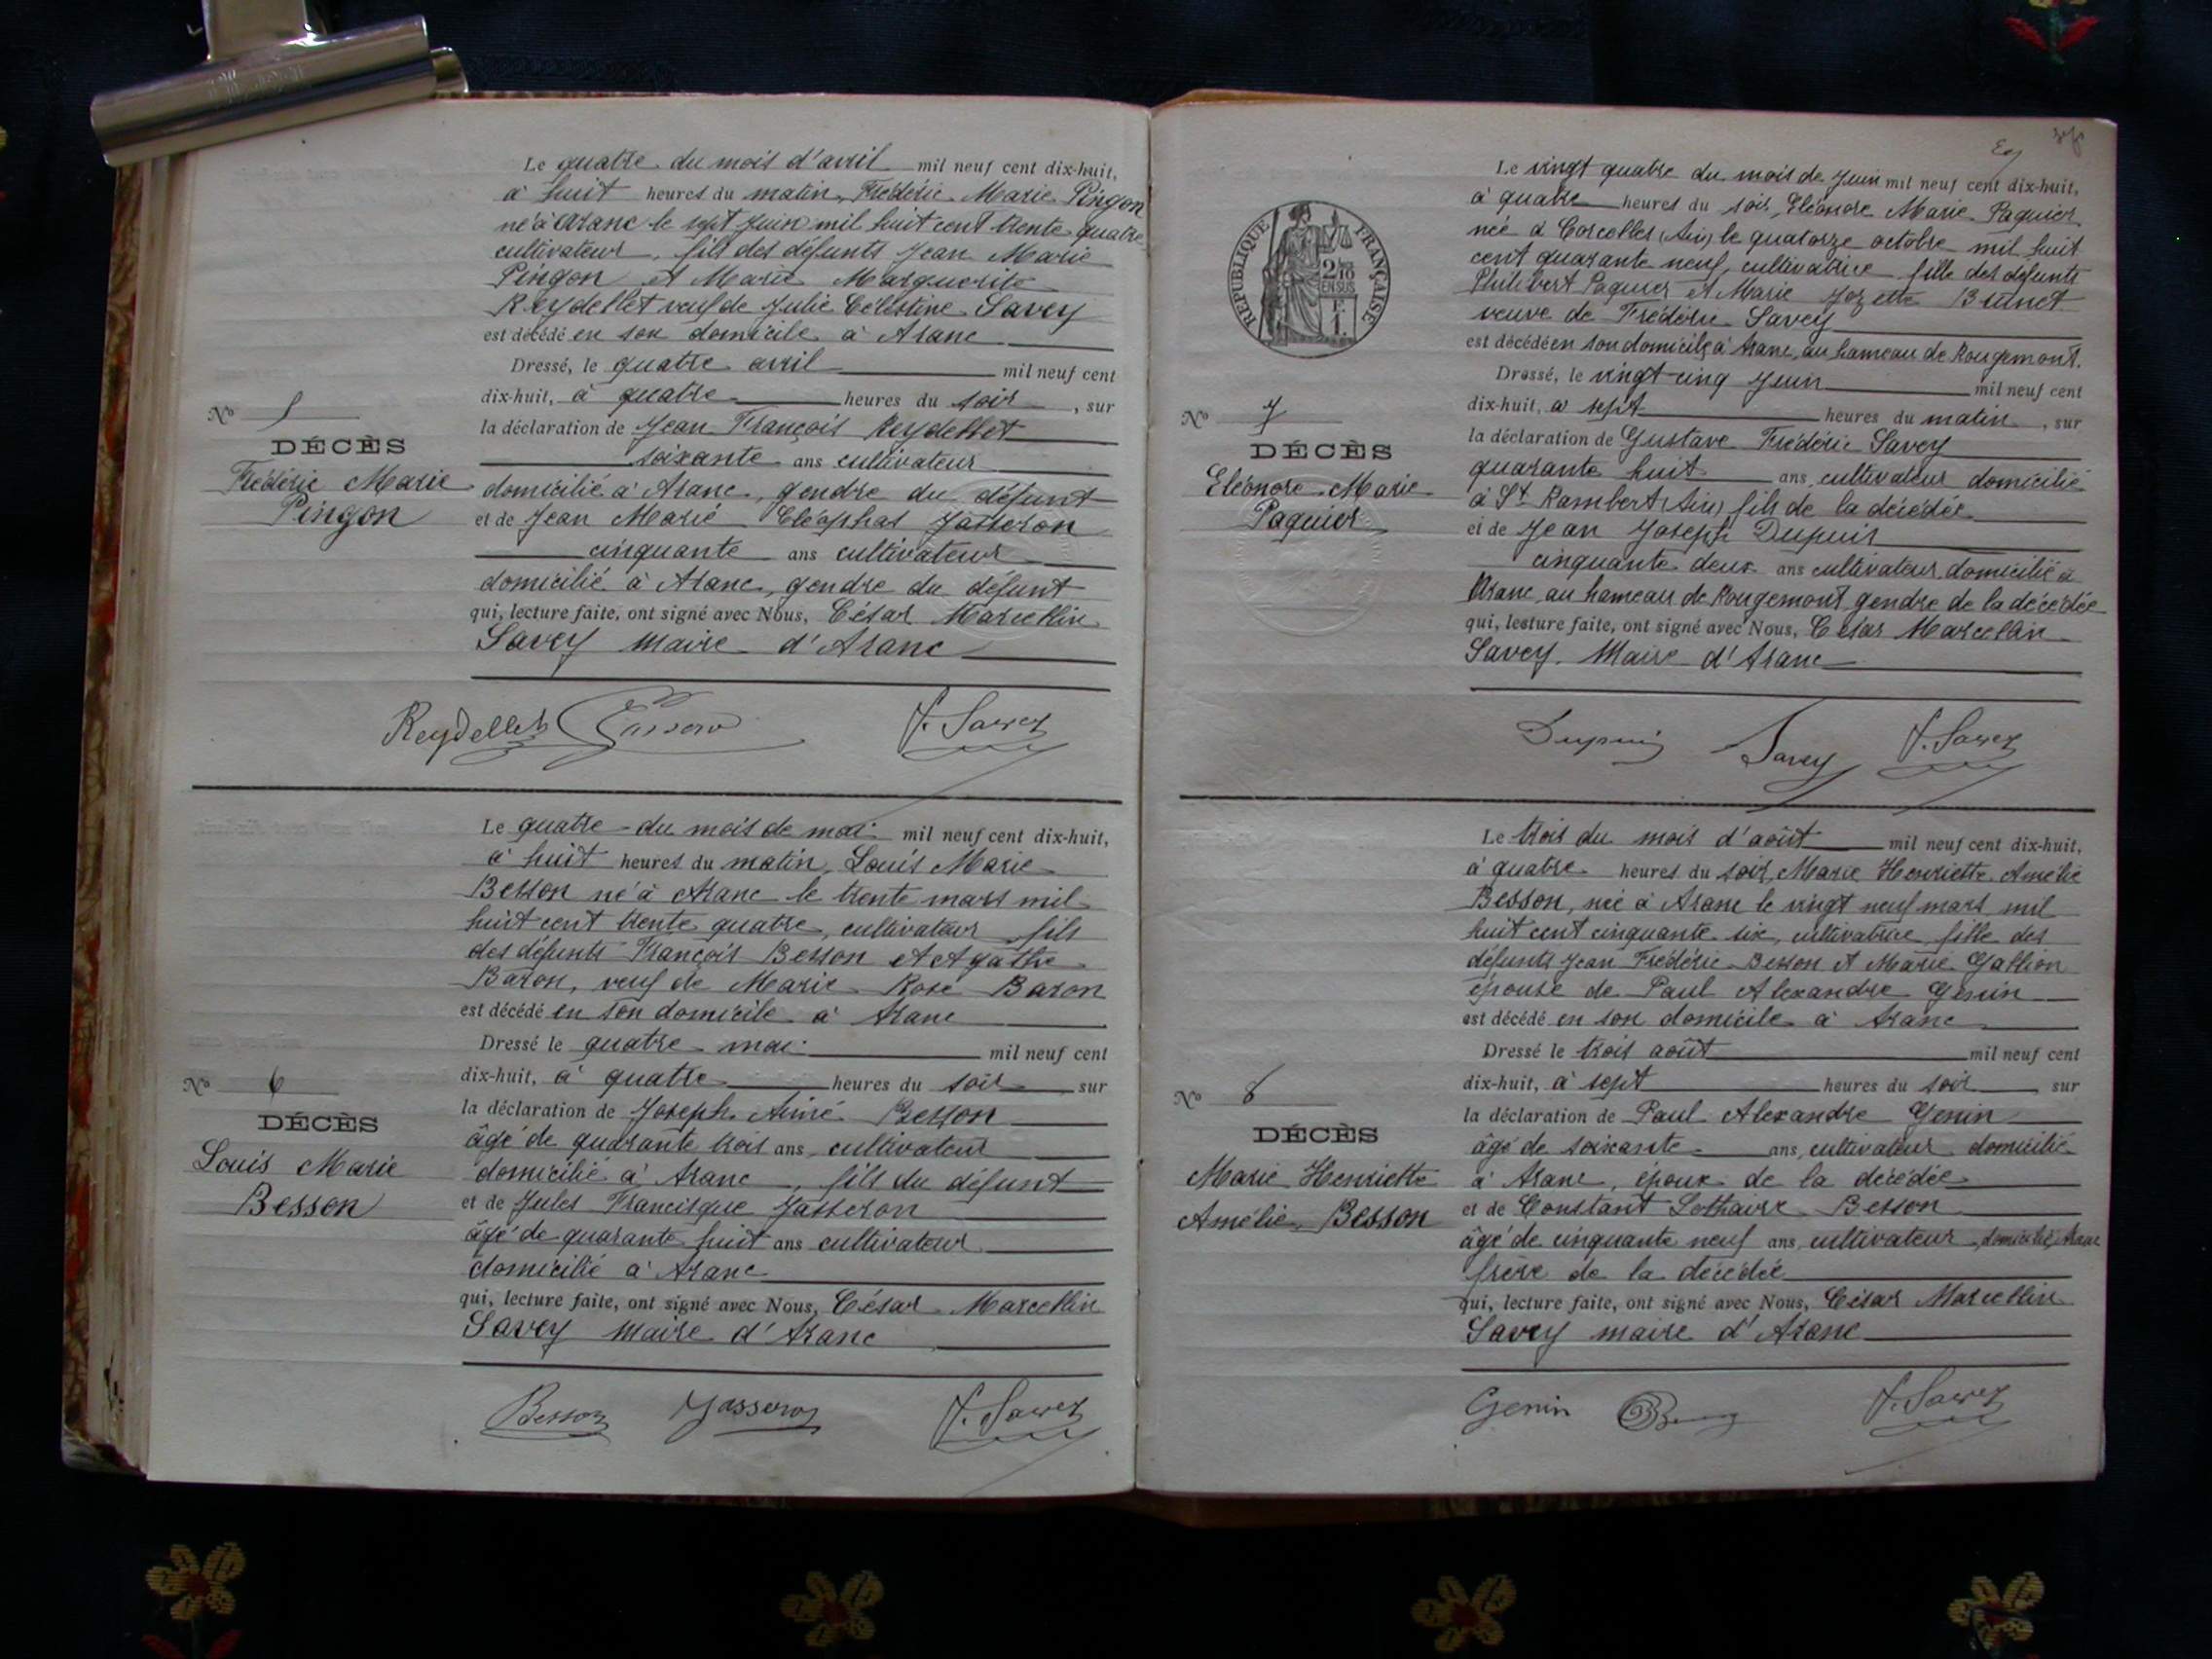 Le quatre du mois d'avril mil neuf cent dix-huit,
à huit heures du matin, Frédéric Marie Pingon
né à Aranc le sept Juin mil huit cent trente quatre
cultivateur, fils des défunts Jean Marie
Pingon et Marie Marguerite
Reydellet veuf de Julie Célestine Savey
est décédé en son domicile à Aranc
Dressé, le quatre avril mil neuf cent
dix-huit, à quatre heures du soir, sur
la déclaration de Jean François Reydellet
soixante ans cultivateur
domicilié à Aranc, gendre du défunt
et de Jean Marie Cléophas Jasseron
cinquante ans cultivateur
domicilié à Aranc, gendre du défunt
qui, lecture faite, ont signé avec Nous, César Marcellin
Savey maire d'Aranc
No 5
DÉCÈS
Frédéric Marie
Pingon
Reydellet F. Savey
Le quatre du mois de mai mil neuf cent dix-huit,
à huit heures du matin, Louis Marie
Besson né à Aranc le trente mars mil
huit cent trente quatre, cultivateur, fils
des défunts François Besson et Agathe
Baron, veuf de Marie Rose Baron
est décédé en son domicile à Aranc
Dressé le quatre mai mil neuf cent
dix-huit, à quatre heures du soir sur
la déclaration de Joseph Aimé Besson
âgé de quarante trois ans, cultivateur
domicilié à Aranc, fils du défunt
et de Jules Francisque Jasseron
âgé de quarante huit ans cultivateur
domicilié à Aranc
qui, lecture faite, ont signé avec Nous, César Marcellin
Savey maire d'Aranc
No 6
DÉCÈS
Louis Marie
Besson
Besson Jasseron F. Savey
RÉPUBLIQUE FRANÇAISE
2/10
EN SUS
1 F.
Le vingt quatre du mois de Juin mil neuf cent dix-huit,
à quatre heures du soir, Eléonore Marie Paquier
née à Corcelles (Ain) le quatorze octobre mil huit
cent quarante neuf, cultivatrice fille des défunts
Philibert Paquier et Marie Jozette Brunet
veuve de Frédéric Savey
est décédé en son domicile à Aranc, au hameau de Rougemont.
Dressé, le vingt-cinq Juin mil neuf cent
dix-huit, à sept heures du matin, sur
la déclaration de Gustave Frédéric Savey
quarante huit ans, cultivateur domicilié
à St Rambert (Ain) fils de la décédée
et de Jean Joseph Dupuis
cinquante deux ans cultivateur domicilié à
Aranc au hameau de Rougemont gendre de la décédée
qui, lecture faite, ont signé avec Nous, César Marcellin
Savey, Maire d'Aranc
No 7
DÉCÈS
Eléonore Marie
Paquier
Dupuis Savey F. Savey
Le trois du mois d'août mil neuf cent dix-huit,
à quatre heures du soir, Marie Henriette Amélie
Besson, née à Aranc le vingt neuf mars mil
huit cent cinquante six, cultivatrice fille des
défunts Jean Frédéric Besson et Marie Gallion
épouse de Paul Alexandre Genin
est décédé en son domicile à Aranc
Dressé le trois août mil neuf cent
dix-huit, à sept heures du soir sur
la déclaration de Paul Alexandre Genin
âgé de soixante ans, cultivateur domicilié
à Aranc, époux de la décédée
et de Constant Lothaire Besson
âgé de cinquante neuf ans, cultivateur, domicilié Aranc
frère de la décédée
qui, lecture faite, ont signé avec Nous, César Marcellin
Savey maire d'Aranc
No 8
DÉCÈS
Marie Henriette
Amélie Besson
Genin F. Savey